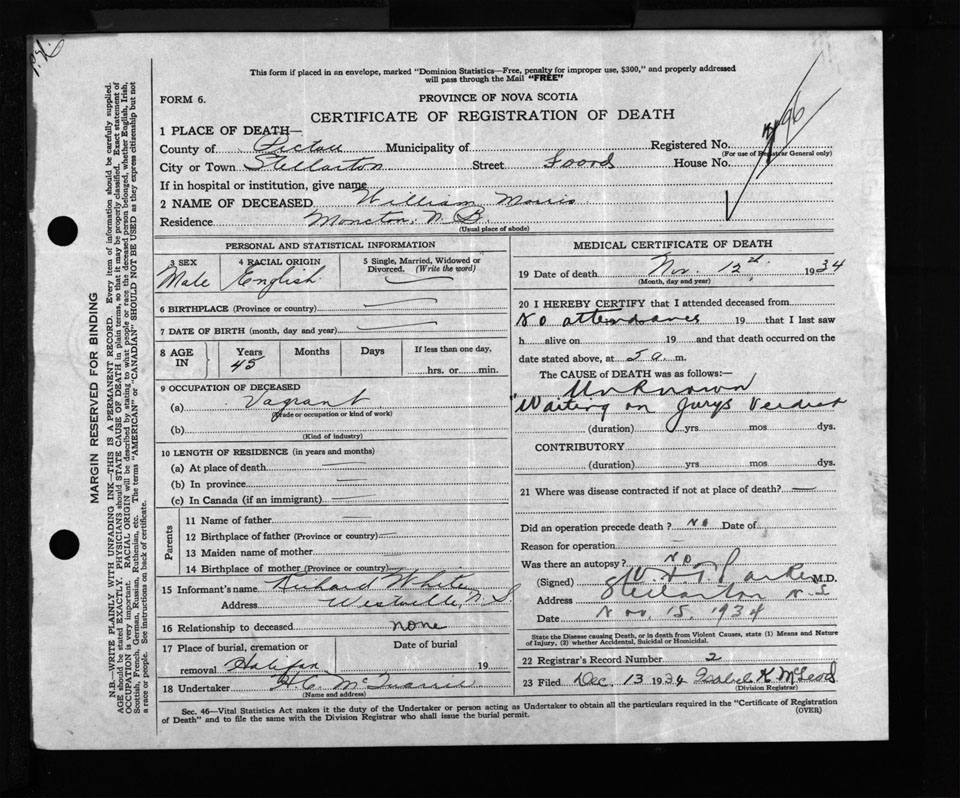 P.L.
This form if placed in an envelope, marked "Dominion Statistics—Free, penalty for improper use, $300," and properly addressed
will pass through the Mail "FREE"
FORM 6.
PROVINCE OF NOVA SCOTIA
CERTIFICATE OF REGISTRATION OF DEATH
96
1 PLACE OF DEATH—
County of Pictou Municipality of Registered No.
(For use of Registrar General only)
City or Town Stellarton Street Foord House No.
If in hospital or institution, give name
2 NAME OF DECEASED William Morris
Residence Moncton, N. B.
(Usual place of abode)
PERSONAL AND STATISTICAL INFORMATION
3 SEX 4 RACIAL ORIGIN 5 Single, Married, Widowed or Divorced. (Write the word)
Male English —
6 BIRTHPLACE (Province or country) —
7 DATE OF BIRTH (month, day and year) —
8 AGE IN Years Months Days If less than one day,
45 hrs. or min.
9 OCCUPATION OF DECEASED
(a) Vagrant
(Trade or occupation or kind of work)
(b)
(Kind of industry)
10 LENGTH OF RESIDENCE (in years and months)
(a) At place of death —
(b) In province —
(c) In Canada (if an immigrant) —
Parents
11 Name of father —
12 Birthplace of father (Province or country) —
13 Maiden name of mother —
14 Birthplace of mother (Province or country) —
15 Informant's name Richard White
Address Westville, N.S
16 Relationship to deceased none
17 Place of burial, cremation or removal Halifax Date of burial 19
18 Undertaker H. C. McQuarrie
(Name and address)
MEDICAL CERTIFICATE OF DEATH
19 Date of death Nov. 12th, 1934
(Month, day and year)
20 I HEREBY CERTIFY that I attended deceased from
No attendance 19 that I last saw
h alive on 19 and that death occurred on the
date stated above, at 5 a. m.
The CAUSE of DEATH was as follows:—
Unknown
Waiting on Jurys Verdict
(duration) yrs mos dys.
CONTRIBUTORY
(duration) yrs mos dys.
21 Where was disease contracted if not at place of death? —
Did an operation precede death? No Date of
Reason for operation —
Was there an autopsy? No
(Signed) Parker M.D.
Address Stellarton N.S.
Date Nov. 15, 1934
State the Disease causing Death, or in death from Violent Causes, state (1) Means and Nature
of Injury, (2) whether Accidental, Suicidal or Homicidal.
22 Registrar's Record Number 2
23 Filed Dec. 13 1934 Isabel K McLeod
(Division Registrar)
Sec. 46—Vital Statistics Act makes it the duty of the Undertaker or person acting as Undertaker to obtain all the particulars required in the "Certificate of Registration
of Death" and to file the same with the Division Registrar who shall issue the burial permit. (OVER)
MARGIN RESERVED FOR BINDING
N.B.—WRITE PLAINLY WITH UNFADING INK—THIS IS A PERMANENT RECORD. Every item of information should be carefully supplied.
AGE should be stated EXACTLY. PHYSICIANS should STATE CAUSE OF DEATH in plain terms, so that it may be properly classified. Exact statement of
OCCUPATION is very important. RACIAL ORIGIN will be described by stating to what people or race the deceased person belonged, whether English, Irish,
Scottish, French, German, Russian, Ruthenian, etc. The terms "AMERICAN" or "CANADIAN" SHOULD NOT BE USED as they express citizenship but not
a race or people. See instructions on back of certificate.